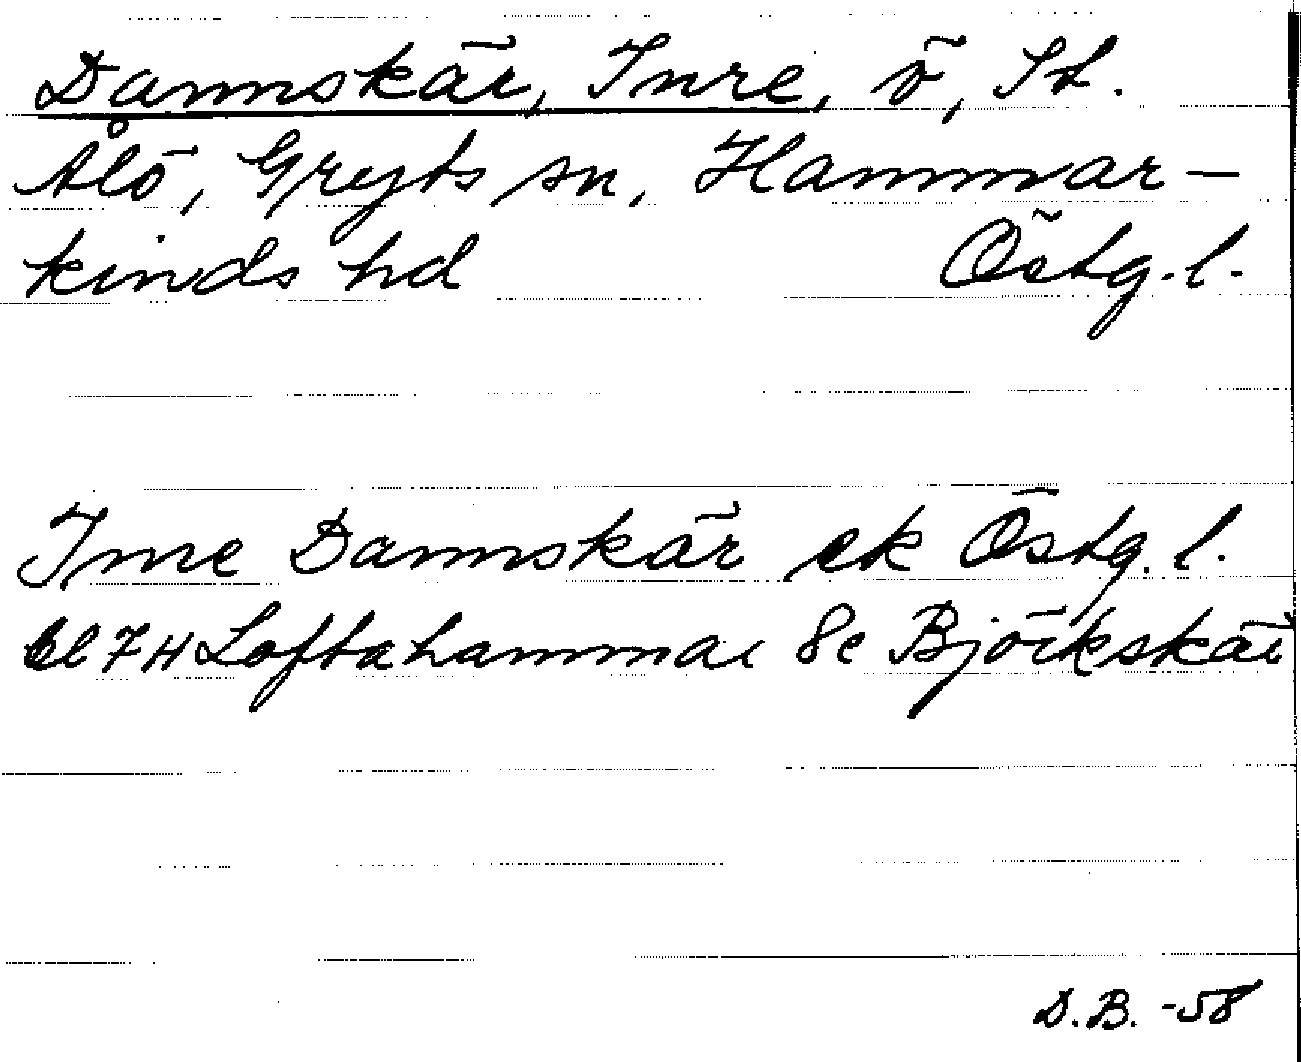 Dannskär, Inre, ö, St.
Ålö, Gryts sn, Hammar-
kinds hd Östg. l.
Inre Dannskär ek Östg. l.
bl 7H Loftahammar 8c Björkskär
D.B. -58